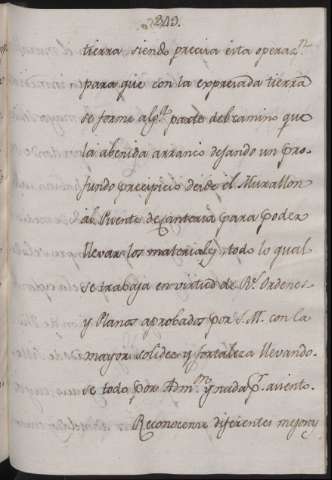 249.
tierra siendo precisa esta operazn.
para que con la expresada tierra
se forme aqlla. parte del camino que
la abenida arranco dejando un pro-
fundo precipicio desde el Murallon
al Puente de Canteria para poder
llevar los materiales, todo lo qual
se trabaja en virtud de Rs. Ordenes
y Planos aprobados por S. M. con la
mayor solidez y fortaleza llevando-
se todo por Admn. y nada pr. asiento.
Reconocense diferentes mejoras